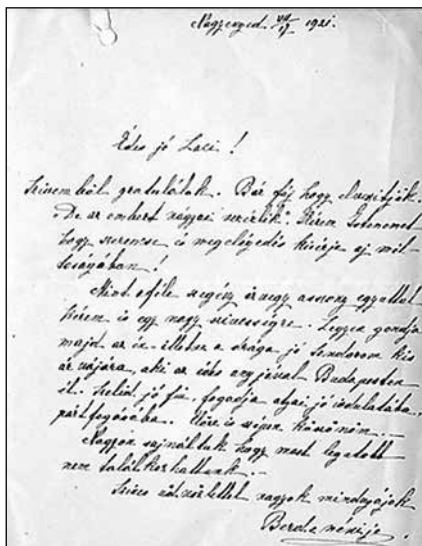 Nagyenyed. VII/17 1921.
Édes jó Laci!
Szivemből gratulálok. Bár fáj hogy elveszitjük.
"De az embert vágyai vezérlik". Kérem Istenemet
hogy szerencse és megelégedés kisérje uj mél-
tóságában!
Mint afféle szegény özvegy asszony egyuttal
kérem is egy nagy szivességre. Legyen gondja
majd az én illetve a drága jó Sándorom kis
árvájára, aki az édes anyjával Budapesten
él. Szelid jó fiu, fogadja atyai jó indulatába,
pártfogásába. Előre is szépen köszönöm. —
Nagyon sajnáltuk hogy most legutott
nem találkozhattunk. —
Szives üdvözlettel vagyok mindnyájok
Berta nénije.